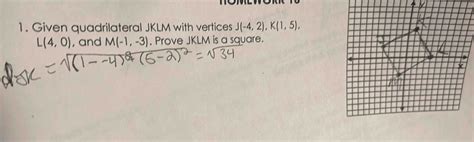 HOMEWORK 10
1. Given quadrilateral JKLM with vertices J(-4, 2), K(1, 5),
L(4, 0), and M(-1, -3). Prove JKLM is a square.
dJK = √(1 - -4)² + (5-2)² = √34